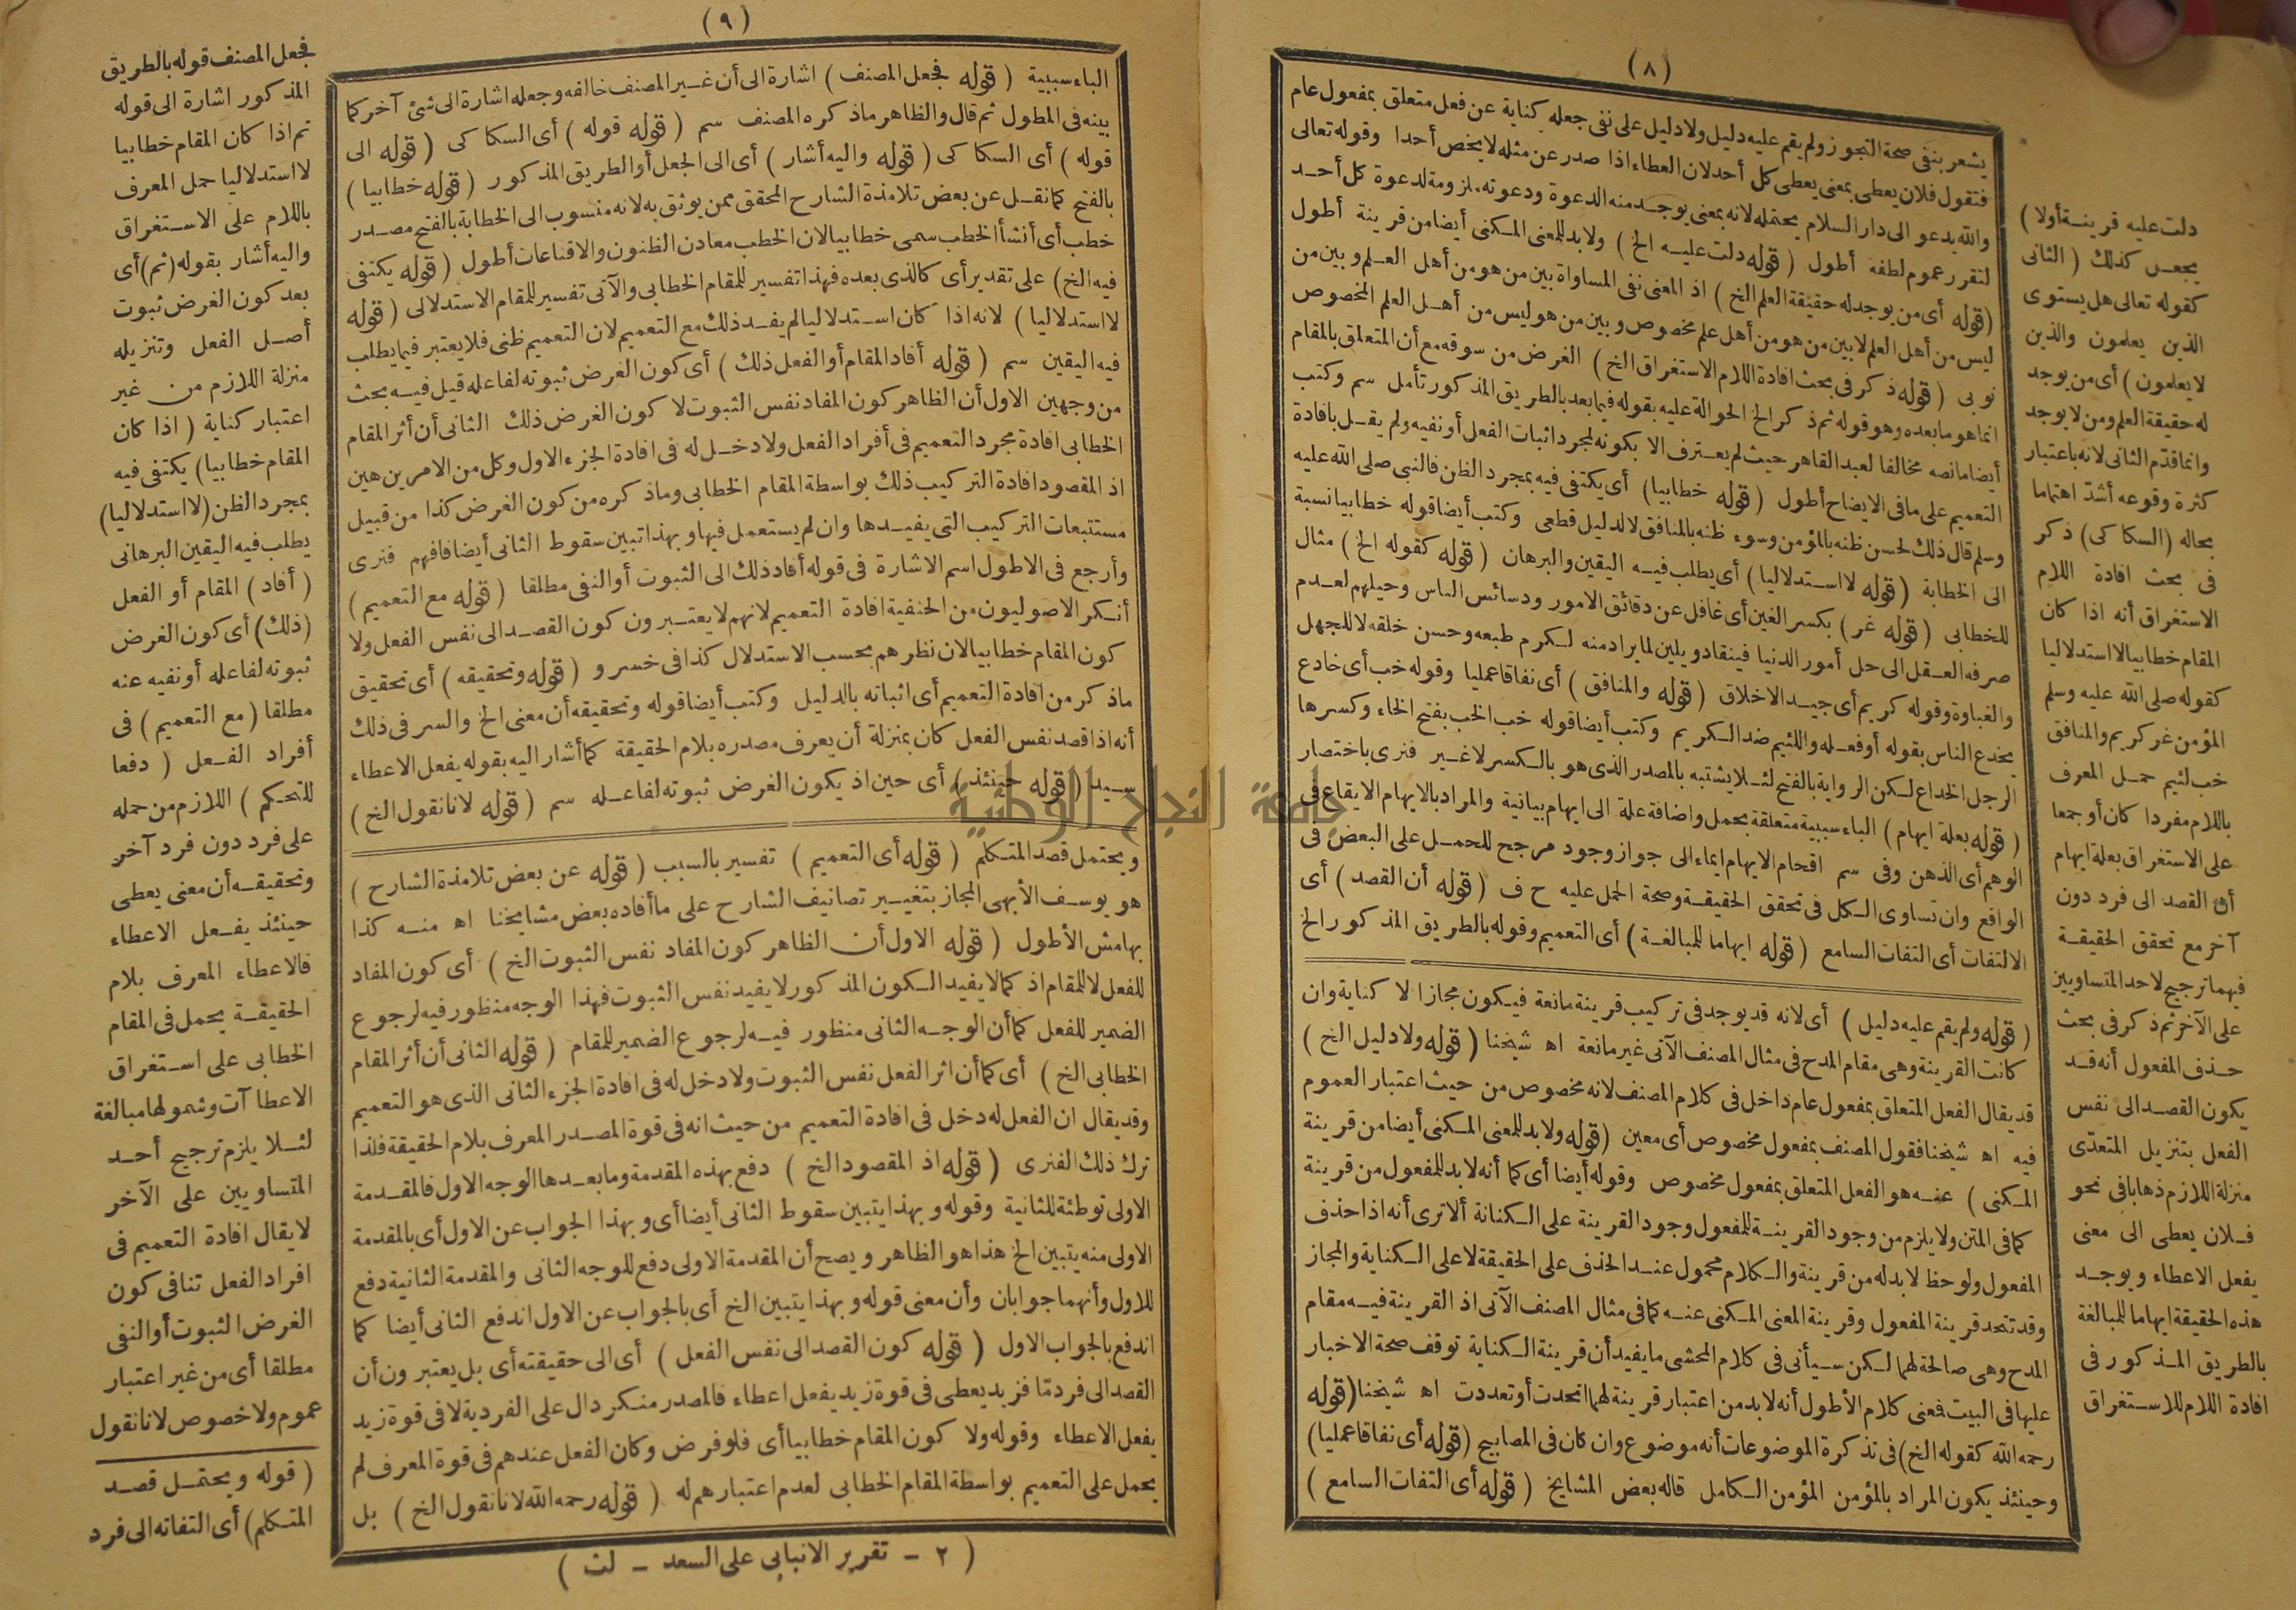 (٨)
يشعر بنفى صحة التجوز ولم يقم عليه دليل ولا دليل على نفى جعله كناية عن فعل متعلق بمفعول عام
فتقول فلان يعطى بمعنى يعطى كل أحد لان العطاء اذا صدر عن مثله لا يخص أحدا وقوله تعالى
والله يدعو الى دار السلام يحتمله لانه بمعنى يوجد منه الدعوة ودعوته ملزومة لدعوة كل أحد
لتقرر عموم لطفه أطول (قوله دلت عليه الخ) ولا بد للمعنى المكنى أيضا من قرينة أطول
(قوله أى من يوجد له حقيقة العلم الخ) اذ المعنى نفى المساواة بين من هو من أهل العلم وبين من
ليس من أهل العلم لا بين من هو من أهل علم مخصوص وبين من هو ليس من أهل العلم المخصوص
نوبى (قوله ذكر فى بحث افادة اللام الاستغراق الخ) الغرض من سوقه مع أن المتعلق بالمقام
انما هو ما بعده وهو قوله ثم ذكر الخ الحوالة عليه بقوله فيما بعد بالطريق المذكور تأمل سم وكتب
أيضا مانصه مخالفا لعبد القاهر حيث لم يعترف الا بكونه لمجرد اثبات الفعل أو نفيه ولم يقل بافادة
التعميم على ما فى الايضاح أطول (قوله خطابيا) أى يكتفى فيه بمجرد الظن فالنبى صلى الله عليه
وسلم قال ذلك لحسن ظنه بالمؤمن وسوء ظنه بالمنافق لا لدليل قطعى وكتب أيضا قوله خطابيا نسبة
الى الخطابة (قوله لا استدلاليا) أى يطلب فيه اليقين والبرهان (قوله كقوله الخ) مثال
للخطابى (قوله غر) بكسر الغين أى غافل عن دقائق الامور ودسائس الناس وحيلهم لعدم
صرفه العقل الى حل أمور الدنيا فينقاد ويلين لما يراد منه لكرم طبعه وحسن خلقه لا للجهل
والغباوة وقوله كريم أى جيد الاخلاق (قوله والمنافق) أى نفاقا عمليا وقوله خب أى خادع
يخدع الناس بقوله أو فعله واللئيم ضد الكريم وكتب أيضا قوله خب الخب بفتح الخاء وكسرها
الرجل الخداع لكن الرواية بالفتح لئلا يشتبه بالمصدر الذى هو بالكسر لا غير فنرى باختصار
(قوله بعلة ايهام) الباء سببية متعلقة بحمل واضافة علة الى ايهام بيانية والمراد بالايهام الايقاع فى
الوهم أى الذهن وفى سم اقحام الايهام ايماء الى جواز وجود مرجح للحمل على البعض فى
الواقع وان تساوى الكل فى تحقق الحقيقة وصحة الحمل عليه ح ف (قوله أن القصد) أى
الالتفات أى التفات السامع (قوله ايهاما للمبالغة) أى التعميم وقوله بالطريق المذكور الخ
(قوله ولم يقم عليه دليل) أى لانه قد يوجد فى تركيب قرينة مانعة فيكون مجازا لا كناية وان
كانت القرينة وهى مقام المدح فى مثال المصنف الآتى غير مانعة اه شيخنا (قوله ولا دليل الخ)
قد يقال الفعل المتعلق بمفعول عام داخل فى كلام المصنف لانه مخصوص من حيث اعتبار العموم
فيه اه شيخنا فقول المصنف بمفعول مخصوص أى معين (قوله ولا بد للمعنى المكنى أيضا من قرينة
المكنى) عنه هو الفعل المتعلق بمفعول مخصوص وقوله أيضا أى كما أنه لا بد للمفعول من قرينة
كما فى المتن ولا يلزم من وجود القرينة للمفعول وجود القرينة على الكنانة ألا ترى أنه اذا حذف
المفعول ولوحظ لا بد له من قرينة والكلام محمول عند الحذف على الحقيقة لا على الكناية والمجاز
وقد تتحد قرينة المفعول وقرينة المعنى المكنى عنه كما فى مثال المصنف الآتى اذ القرينة فيه مقام
المدح وهى صالحة لهما لكن سيأتى فى كلام المحشى ما يفيد أن قرينة الكناية توقف صحة الاخبار
عليها فى البيت فعنى كلام الأطول أنه لا بد من اعتبار قرينة لهما اتحدت أو تعددت اه شيخنا (قوله
رحمه الله كقوله الخ) فى تذكرة الموضوعات أنه موضوع وان كان فى المصابيح (قوله أى نفاقا عمليا)
وحينئذ يكون المراد بالمؤمن المؤمن الكامل قاله بعض المشايخ (قوله أى التفات السامع)
دلت عليه قرينة أولا)
يجعل كذلك (الثانى
كقوله تعالى هل يستوى
الذين يعلمون والذين
لا يعلمون) أى من يوجد
له حقيقة العلم ومن لا يوجد
وانما قدّم الثانى لانه باعتبار
كثرة وقوعه أشدّ اهتماما
بحاله (السكاكى) ذكر
فى بحث افادة اللام
الاستغراق أنه اذا كان
المقام خطابيا لا استدلاليا
كقوله صلى الله عليه وسلم
المؤمن غر كريم والمنافق
خب لئيم حمل المعرف
باللام مفردا كان أو جمعا
على الاستغراق بعلة ايهام
أن القصد الى فرد دون
آخر مع تحقق الحقيقة
فيهما ترجيح لاحد المتساويين
على الآخر ثم ذكر فى بحث
حذف المفعول أنه قد
يكون القصد الى نفس
الفعل بتنزيل المتعدّى
منزلة اللازم ذهابا فى نحو
فلان يعطى الى معنى
يفعل الاعطاء ويوجد
هذه الحقيقة ايهاما للمبالغة
بالطريق المذكور فى
افادة اللام للاستغراق
(٩)
الباء سببية (قوله فجعل المصنف) اشارة الى أن غير المصنف خالفه وجعله اشارة الى شئ آخر كما
بينه فى المطول ثم قال والظاهر ما ذكره المصنف سم (قوله قوله) أى السكاكى (قوله الى
قوله) أى السكاكى (قوله واليه أشار) أى الى الجعل أو الطريق المذكور (قوله خطابيا)
بالفتح كما نقل عن بعض تلامذة الشارح المحقق ممن يوثق به لانه منسوب الى الخطابة بالفتح مصدر
خطب أى أنشأ الخطب سمى خطابيا لان الخطب معادن الظنون والاقناعات أطول (قوله يكتفى
فيه الخ) على تقدير أى كالذى بعده فهذا تفسير للمقام الخطابى والآتى تفسير للمقام الاستدلالى (قوله
لا استدلاليا) لانه اذا كان استدلاليا لم يفد ذلك مع التعميم لان التعميم ظنى فلا يعتبر فيما يطلب
فيه اليقين سم (قوله أفاد المقام أو الفعل ذلك) أى كون الغرض ثبوته لفاعله قيل فيه بحث
من وجهين الاول أن الظاهر كون المفاد نفس الثبوت لا كون الغرض ذلك الثانى أن أثر المقام
الخطابى افادة مجرد التعميم فى أفراد الفعل ولا دخل له فى افادة الجزء الاول وكل من الامرين هين
اذ المقصود افادة التركيب ذلك بواسطة المقام الخطابى وما ذكره من كون الغرض كذا من قبيل
مستتبعات التركيب التى يفيدها وان لم يستعمل فيها وبهذا تبين سقوط الثانى أيضا فافهم فنرى
وأرجع فى الاطول اسم الاشارة فى قوله أفاد ذلك الى الثبوت أو النفى مطلقا (قوله مع التعميم)
أنكر الاصوليون من الحنفية افادة التعميم لانهم لا يعتبرون كون القصد الى نفس الفعل ولا
كون المقام خطابيا لان نظرهم بحسب الاستدلال كذا فى خسرو (قوله وتحقيقه) أى تحقيق
ما ذكر من افادة التعميم أى اثباته بالدليل وكتب أيضا قوله وتحقيقه أن معنى الخ والسر فى ذلك
أنه اذا قصد نفس الفعل كان بمنزلة أن يعرف مصدره بلام الحقيقة كما أشار اليه بقوله يفعل الاعطاء
سيد (قوله حينئذ) أى حين اذ يكون الغرض ثبوته لفاعله سم (قوله لانا نقول الخ)
ويحتمل قصد المتكلم (قوله أى التعميم) تفسير بالسبب (قوله عن بعض تلامذة الشارح)
هو يوسف الأبهى المجاز بتغيير تصانيف الشارح على ما أفاده بعض مشايخنا اه منه كذا
بهامش الأطول (قوله الاول أن الظاهر كون المفاد نفس الثبوت الخ) أى كون المفاد
للفعل لا للمقام اذ كما لا يفيد الكون المذكور لا يفيد نفس الثبوت فهذا الوجه منظور فيه لرجوع
الضمير للفعل كما أن الوجه الثانى منظور فيه لرجوع الضمير للمقام (قوله الثانى أن أثر المقام
الخطابى الخ) أى كما أن اثر الفعل نفس الثبوت ولا دخل له فى افادة الجزء الثانى الذى هو التعميم
وقد يقال ان الفعل له دخل فى افادة التعميم من حيث انه فى قوة المصدر المعرف بلام الحقيقة فلذا
ترك ذلك الفنرى (قوله اذ المقصود الخ) دفع بهذه المقدمة وما بعدها الوجه الاول فالمقدمة
الاولى توطئة للثانية وقوله وبهذا يتبين سقوط الثانى أيضا أى وبهذا الجواب عن الاول أى بالمقدمة
الاولى منه يتبين الخ هذا هو الظاهر ويصح أن المقدمة الاولى دفع للوجه الثانى والمقدمة الثانية دفع
للاول وأنهما جوابان وأن معنى قوله وبهذا يتبين الخ أى بالجواب عن الاول اندفع الثانى أيضا كما
اندفع بالجواب الاول (قوله كون القصد الى نفس الفعل) أى الى حقيقته أى بل يعتبرون أن
القصد الى فرد مّا فزيد يعطى فى قوة زيد يفعل اعطاء فالمصدر منكر دال على الفردية لا فى قوة زيد
يفعل الاعطاء وقوله ولا كون المقام خطابيا أى فلو فرض وكان الفعل عندهم فى قوة المعرف لم
يحمل على التعميم بواسطة المقام الخطابى لعدم اعتبارهم له (قوله رحمه الله لانا نقول الخ) بل
(٢ - تقرير الانبابى على السعد - لث)
فجعل المصنف قوله بالطريق
المذكور اشارة الى قوله
ثم اذا كان المقام خطابيا
لا استدلاليا حمل المعرف
باللام على الاستغراق
واليه أشار بقوله (ثم) أى
بعد كون الغرض ثبوت
أصل الفعل وتنزيله
منزلة اللازم من غير
اعتبار كناية (اذا كان
المقام خطابيا) يكتفى فيه
بمجرد الظن (لا استدلاليا)
يطلب فيه اليقين البرهانى
(أفاد) المقام أو الفعل
(ذلك) أى كون الغرض
ثبوته لفاعله أو نفيه عنه
مطلقا (مع التعميم) فى
أفراد الفعل (دفعا
للتحكم) اللازم من حمله
على فرد دون فرد آخر
وتحقيقه أن معنى يعطى
حينئذ يفعل الاعطاء
فالاعطاء المعرف بلام
الحقيقة يحمل فى المقام
الخطابى على استغراق
الاعطاآت وشمولها مبالغة
لئلا يلزم ترجيح أحد
المتساويين على الآخر
لا يقال افادة التعميم فى
افراد الفعل تنافى كون
الغرض الثبوت أو النفى
مطلقا أى من غير اعتبار
عموم ولا خصوص لانا نقول
(قوله ويحتمل قصد
المتكلم) أى التفاته الى فرد
جامعة النجاح الوطنية